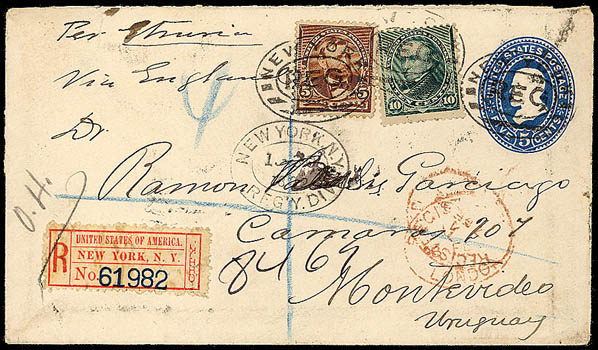 Per Etruria
Via England
Dr.
Ramon Garciago
Camaras 207
8469
Montevideo
Uruguay
O.H.
5 5
10 10
UNITED STATES POSTAGE
FIVE 5 CENTS
NEW YORK
REG
NEW YORK, N.Y.
REG'Y. DIV
REGISTERED
LONDON
R
UNITED STATES OF AMERICA.
NEW YORK, N. Y.
No. 61982